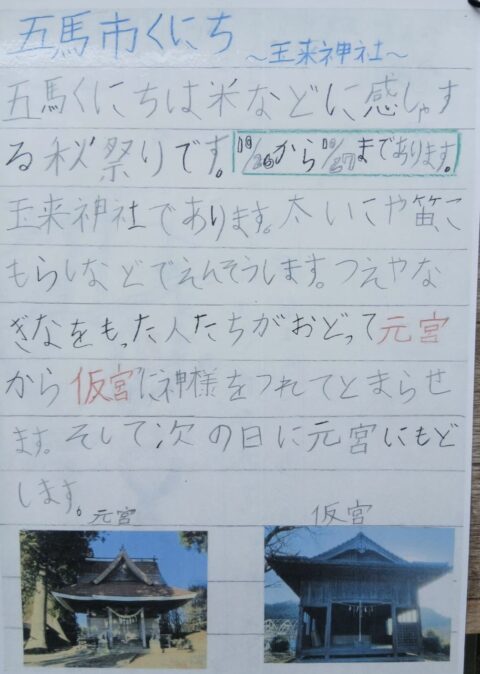 五馬市くにち
～玉来神社～
五馬くにちは米などに感しゃす
る秋祭りです。10/26から10/27まであります。
玉来神社であります。太いこや笛こ
もらしなどでえんそうします。つえやな
ぎなをもった人たちがおどって元宮
から仮宮に神様をつれてとまらせ
ます。そして次の日に元宮にもど
します。
元宮
仮宮